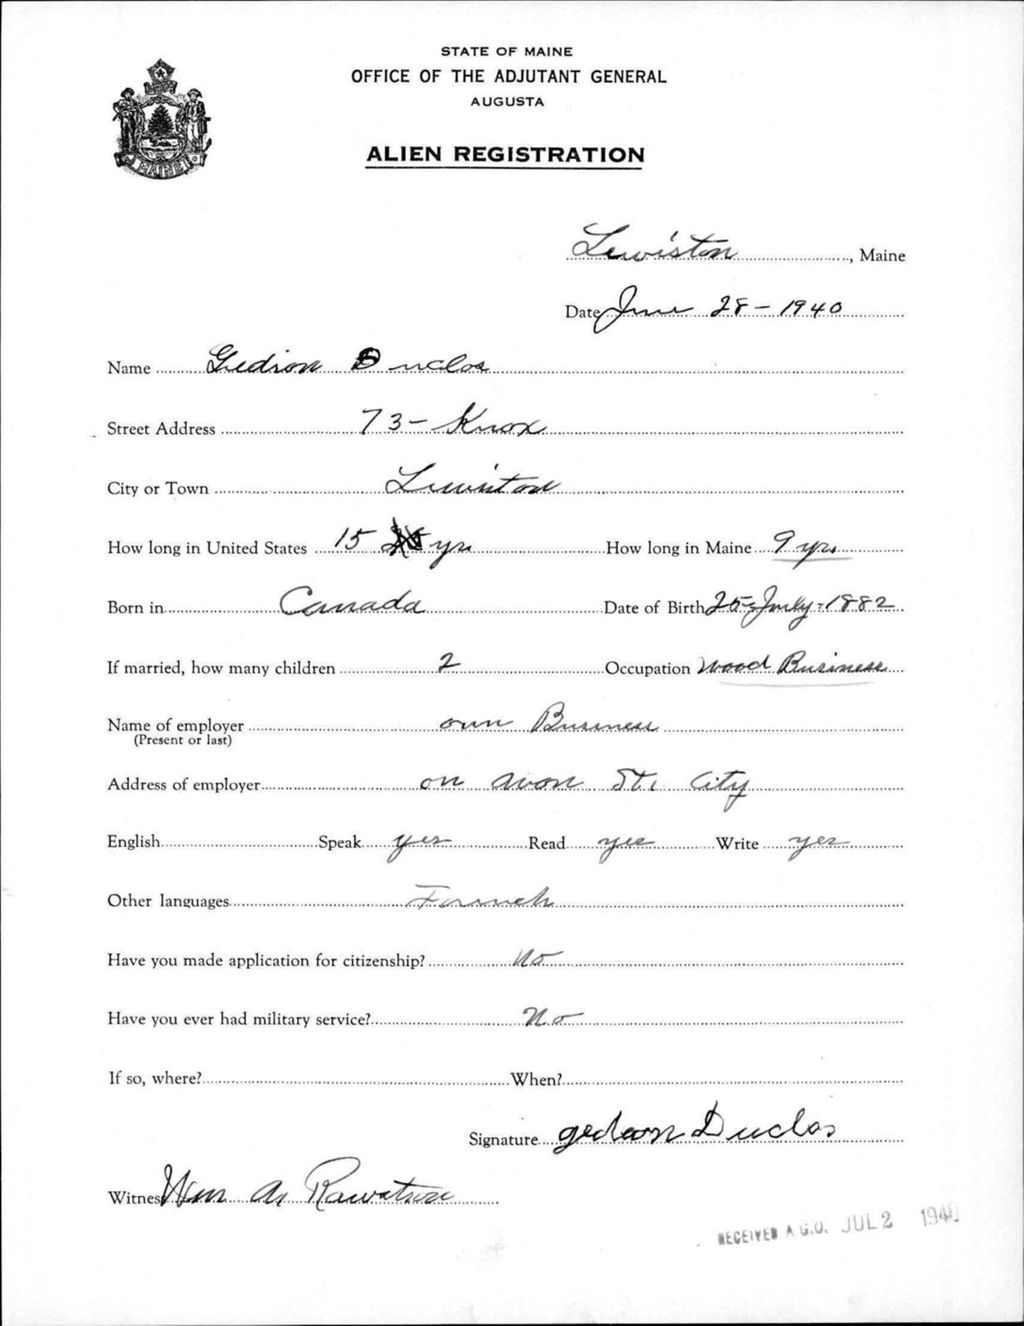 STATE OF MAINE
OFFICE OF THE ADJUTANT GENERAL
AUGUSTA
ALIEN REGISTRATION
MAINE
Lewiston, Maine
Date June 28 - 1940
Name Gedion Duclos
Street Address 73 - Knox
City or Town Lewiston
How long in United States 15 yrs How long in Maine 9 yrs.
Born in Canada Date of Birth 25 - July - 1882
If married, how many children 2 Occupation Wood Business
Name of employer own Business
(Present or last)
Address of employer on Avon St. City
English Speak yes Read yes Write yes
Other languages French
Have you made application for citizenship? No
Have you ever had military service? No
If so, where? When?
Signature gedeon Duclos
Witness Wm A.
RECEIVED A.G.O. JUL 2 1940